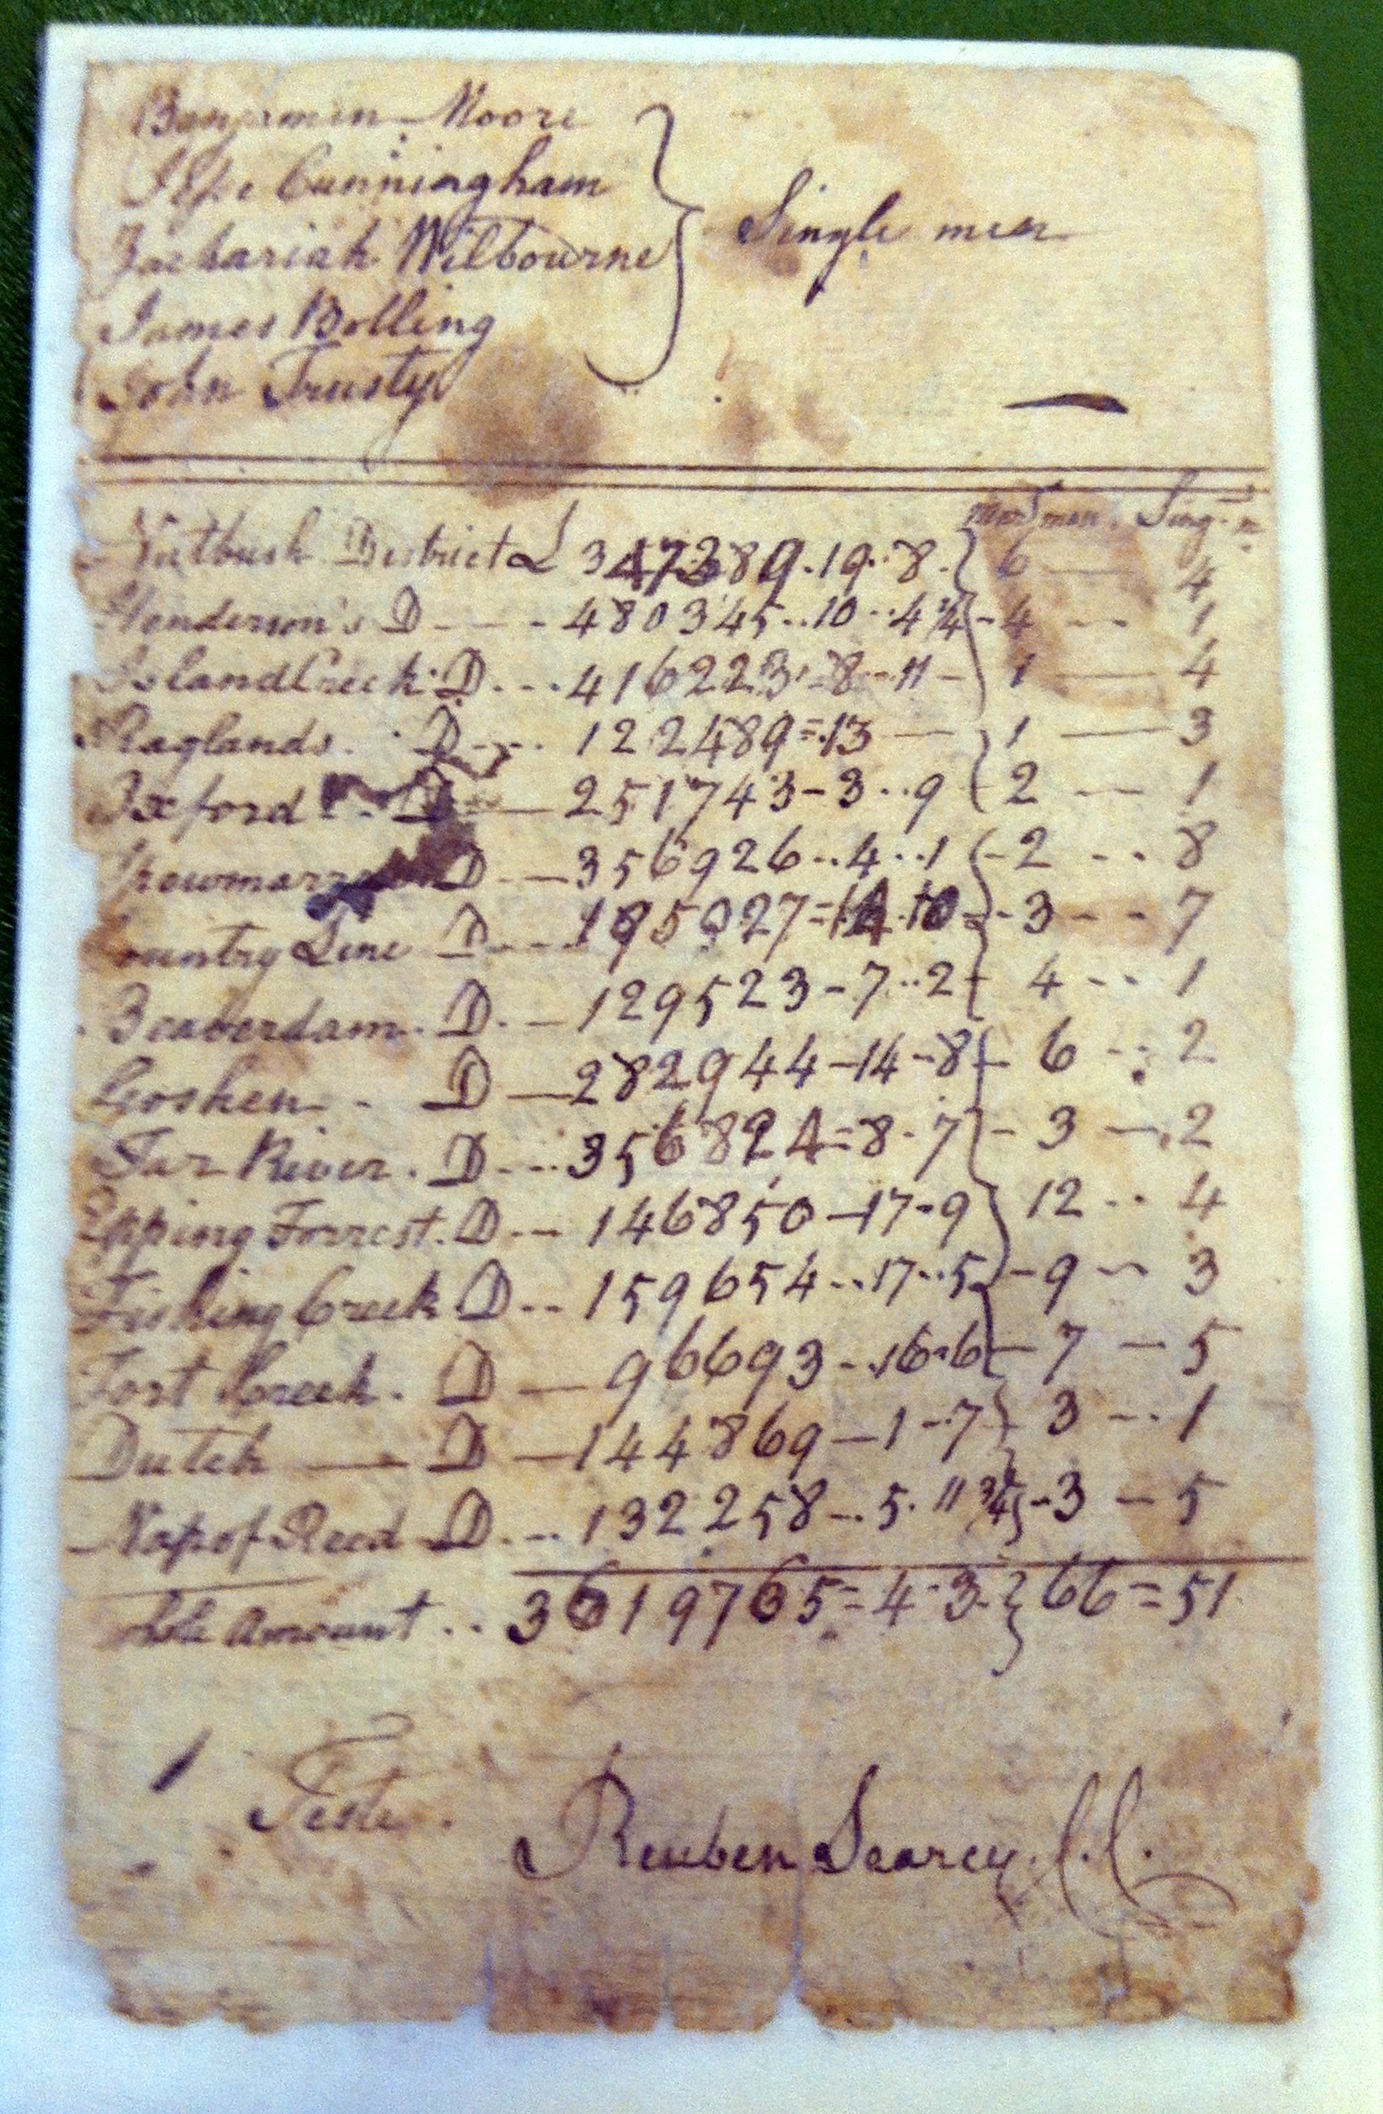 Benjamin Moore
Jesse Cunningham
Zachariah Wilbourne } Single men
James Bolling
John Trusty
Mar'd men. Sing. m
Nutbush District £ 347289.19..8. } 6 — 4
Henderson's D - - - 480345..10..4 3/4 } - 4 -- 1
Island Creek. D. - - . 416223=8--11 - } 1 — 4
Raglands. . D - - . 122489=.13 — } 1 — 3
Oxford . . D — 251743-3..9 { 2 -- 1
D. - — 356926..4..1 { -2 - .. 8
Country Line D. - - - 195027=14.10 = } - 3 - - - 7
Beaverdam. D. — 129523-7..2 } 4 - .. 1
Goshen . - D — 282944-14-8 { - 6 -- 2
Tar River. D. - - . 356824=8.7 } - 3 — . 2
Epping Forrest. D - - 146850-17-9 } 12 .. 4
Fishing Creek D - - 159654..17..5 } - 9 -- 3
Fort Creek. D — 96693-.16.6 } - 7 — 5
Dutch — D — 144869-1-7 } 3 - .. 1
Nap of Reed D. - - . 132258-.5.11 3/4 } - 3 - 5
Whole Amount .. 3619765=4.3. } 66=51
Teste.
Reuben Searcy. C.C.